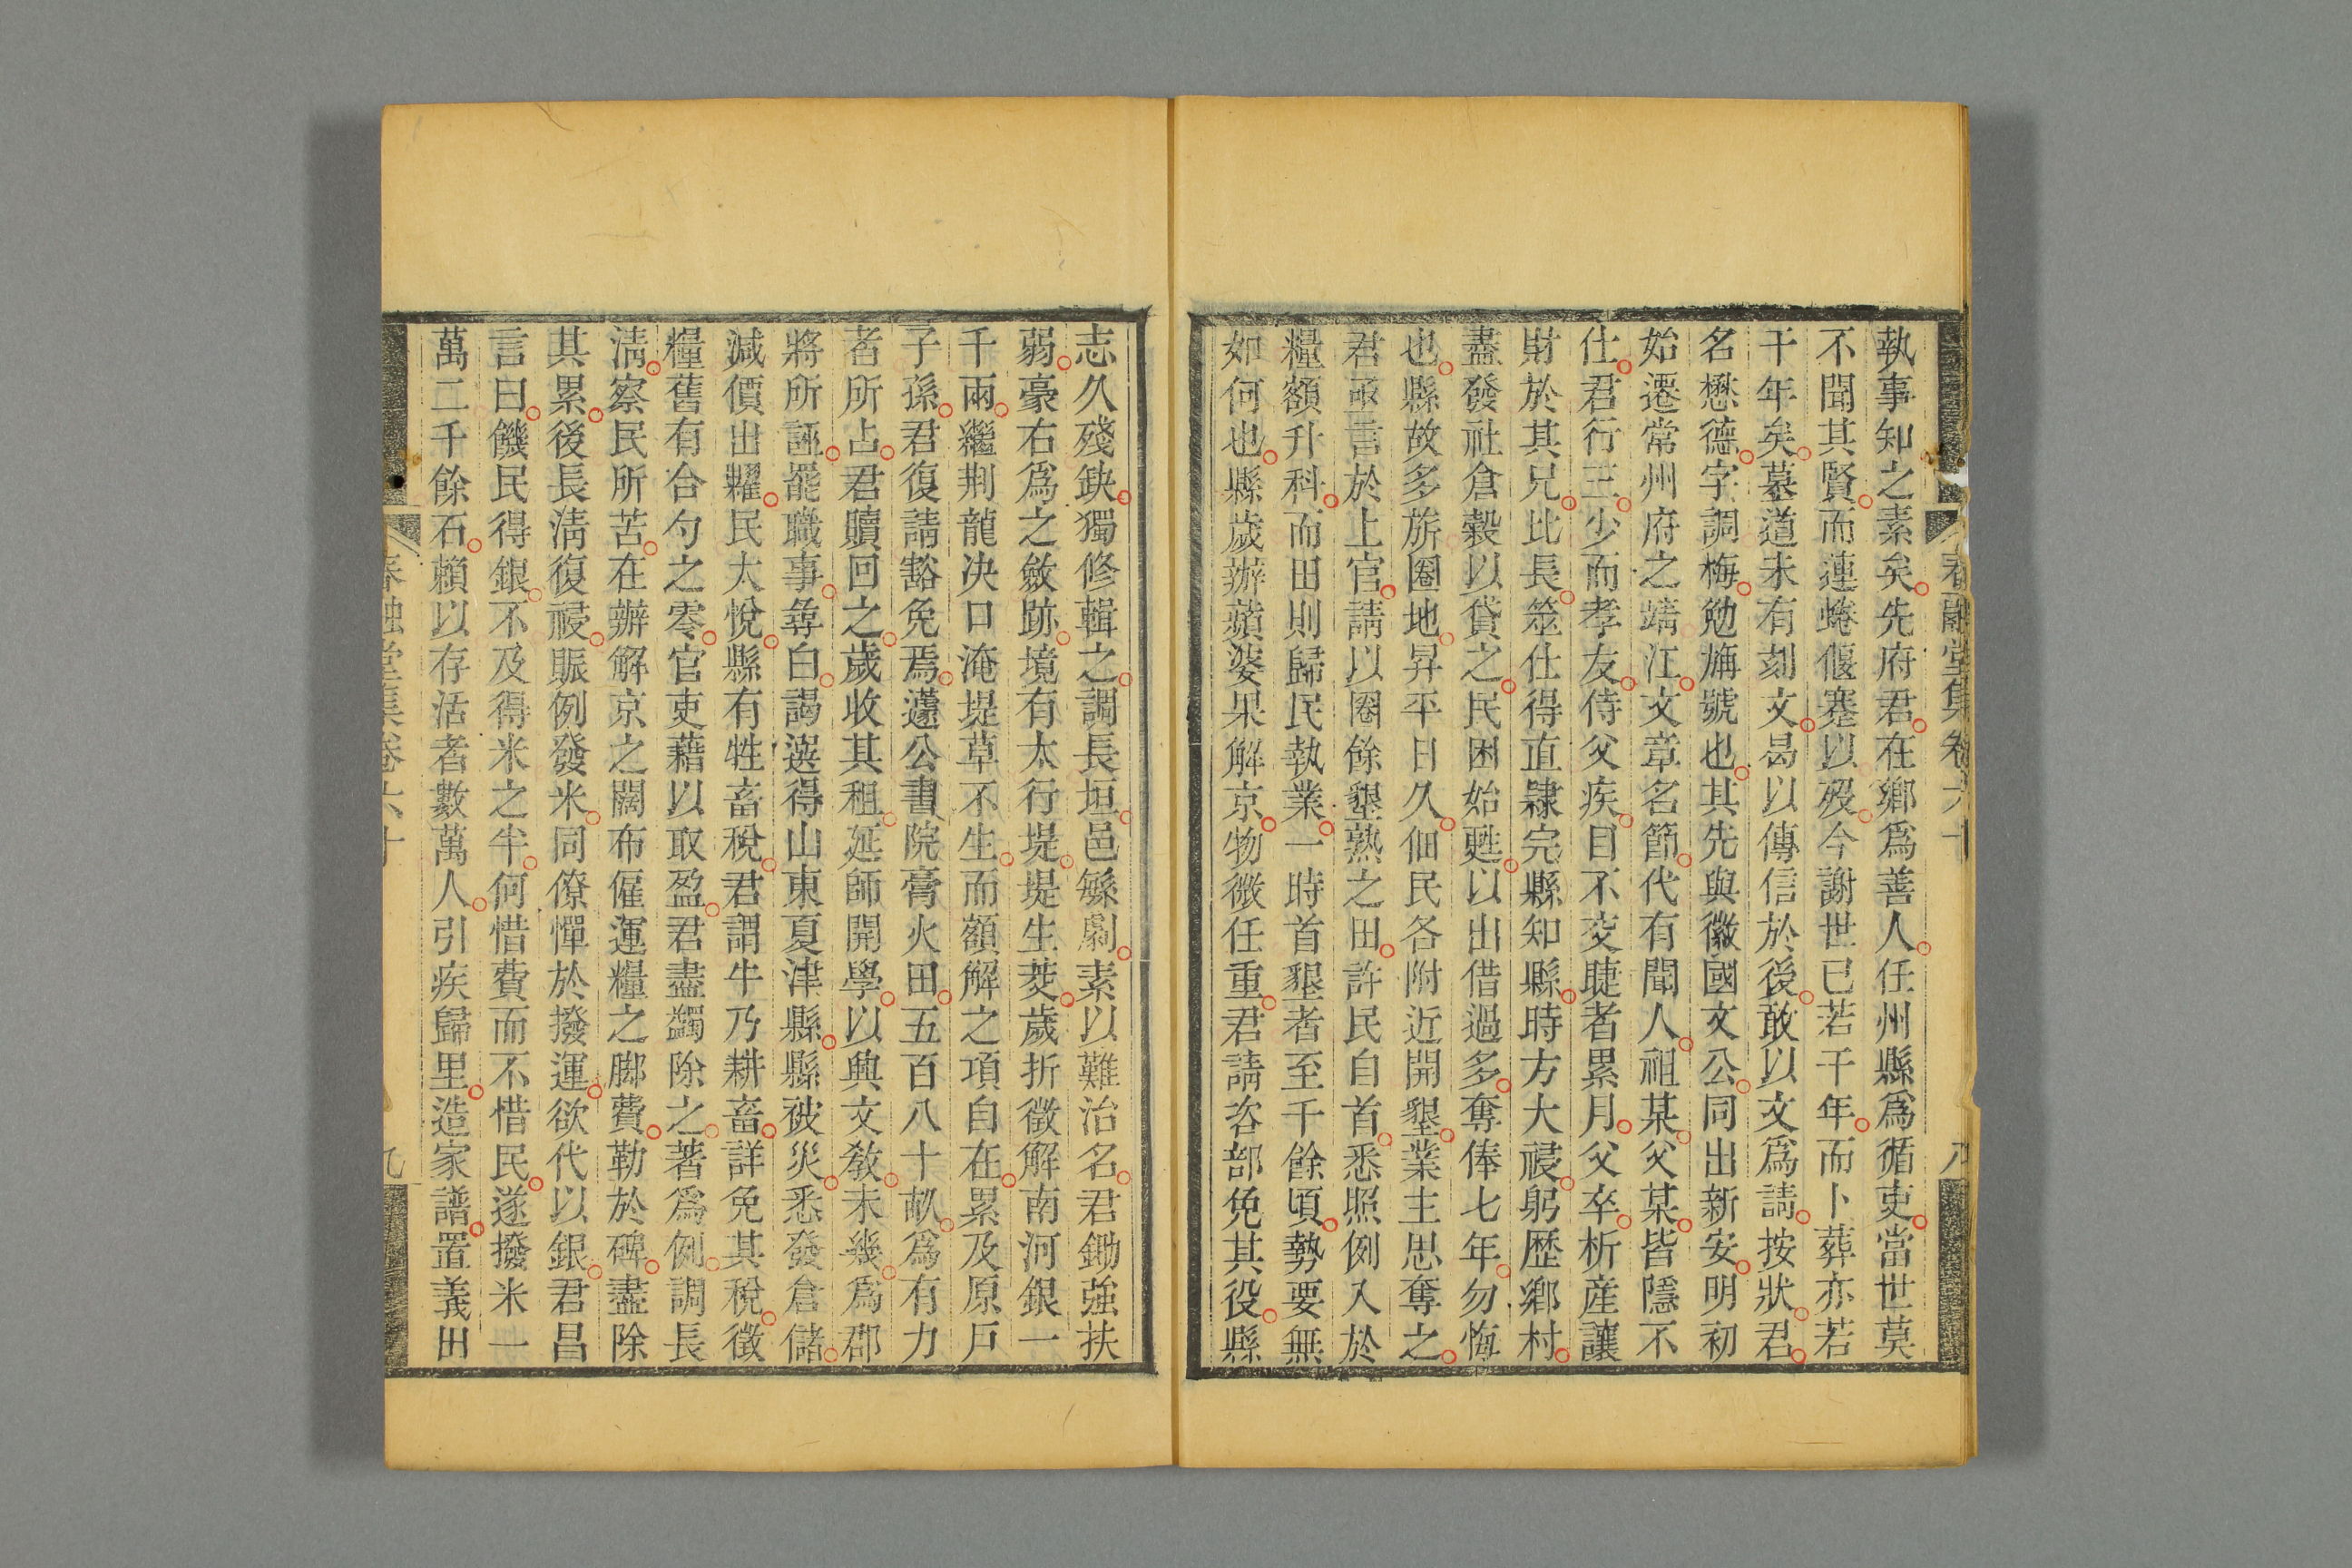 執事知之素矣先府君在鄉爲善人任州縣爲循吏當世莫
不聞其賢而連蜷偃蹇以歿今謝世已若干年而卜葬亦若
干年矣墓道未有刻文曷以傳信於後敢以文爲請按狀君
名懋德字調梅勉旃號也其先與徽國文公同出新安明初
始遷常州府之靖江文章名節代有聞人祖某父某皆隱不
仕君行三少而孝友侍父疾目不交睫者累月父卒析産讓
財於其兄比長筮仕得直隸完縣知縣時方大祲躬歷鄉村
盡發社倉穀以貸之民困始甦以出借過多奪俸七年勿悔
也縣故多旂圈地昇平日久佃民各附近開墾業主思奪之
君亟言於上官請以圈餘墾熟之田許民自首悉照例入於
糧額升科而田則歸民執業一時首墾者至千餘頃勢要無
如何也縣歲辦蘋婆果解京物微任重君請咨部免其役縣
志久殘缺獨修輯之調長垣邑緐劇素以難治名君鋤強扶
弱豪右爲之斂跡境有太行堤堤生茭歲折徵解南河銀一
千兩繼荆龍决口淹堤草不生而額解之項自在累及原戶
子孫君復請豁免焉蘧公書院膏火田五百八十畝爲有力
者所占君贖回之歲收其租延師開學以興文敎未幾爲郡
將所誣罷職事尋白謁選得山東夏津縣縣被災悉發倉儲
減價出糶民大悅縣有牲畜稅君謂牛乃耕畜詳免其稅徵
糧舊有合勺之零官吏藉以取盈君盡蠲除之著爲例調長
淸察民所苦在辦解京之闊布僱運糧之脚費勒於碑盡除
其累後長淸復祲賑例發米同僚憚於撥運欲代以銀君昌
言曰饑民得銀不及得米之半何惜費而不惜民遂撥米一
萬二千餘石賴以存活者數萬人引疾歸里造家譜置義田
春融堂集卷六十
八
春融堂集卷六十
九